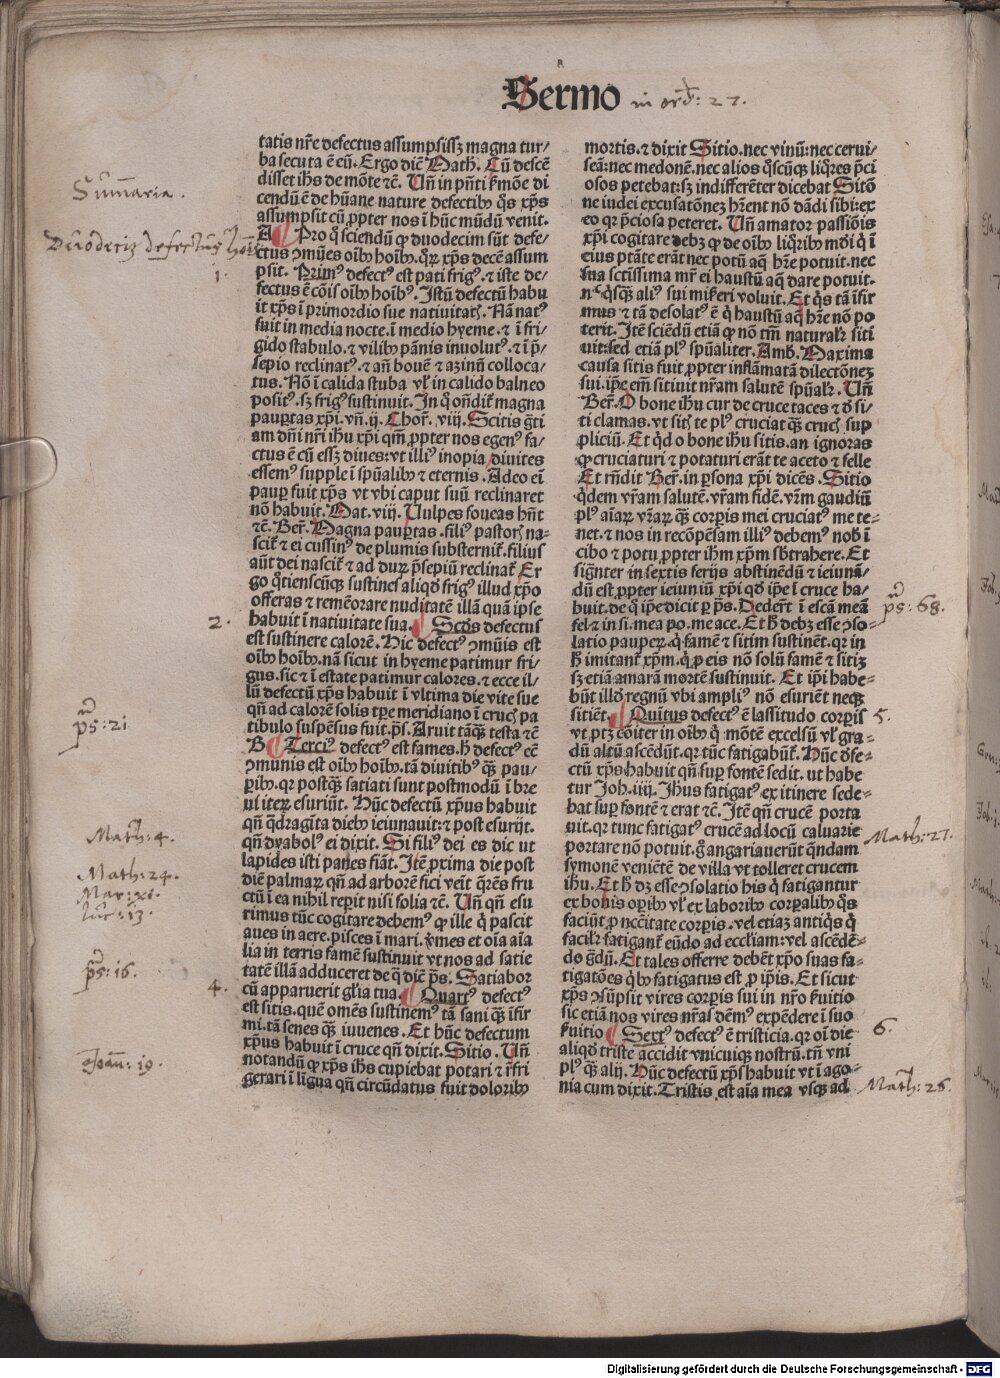 Sermo in ord: 27.
tatis nr̄e defectus assumpsissʒ magna tur-
ba secuta ē eū. Ergo diē Math. Cū descē
disset ihs de mōte ⁊c. Un̄ in pn̄ti ẜmōe di
cendū ē de hūane nature defectibꝰ q̄s xp̄s
assumpsit cū ꝓpter nos ī hūc mūdū venit.
A Pro q̊ sciendū ꝙ duodecim sūt defe-
ctus ꝯmūes oībꝰ hoībꝰ. qꝝ xp̄s decē assum
psit. Primꝰ defectꝰ est pati frigꝰ. ⁊ iste de-
fectus ē cōis oībꝰ hoībꝰ. Istū defectū habu
it xp̄s ī primordio sue nativitatꝭ. Nā natꝰ
fuit in media nocte. ī medio hyeme. ⁊ ī fri-
gido stabulo. ⁊ vilibꝰ pānis inuolutꝰ. ⁊ ī p̄-
sepio reclinatꝰ. ⁊ an̄ bouē ⁊ azinū colloca-
tus. Nō ī calida stuba vl̓ in calido balneo
positꝰ. sʒ frigꝰ sustinuit. In q̊ on̄dit̉ magna
paup̱tas xp̄i. vn̄. ij. Chor̄. viij. Scitis gr̄ti
am dn̄i nr̄i ihu xp̄i qm̄ ꝓpter nos egenꝰ fa-
ctus ē cū essʒ diues: vt illiꝰ inopia diuites
essemꝰ supple ī spūalibꝰ ⁊ eternis. Adeo eī
paup̱ fuit xp̄s vt vbi caput suū reclinaret
nō habuit. Mat. viij. Uulpes foueas hn̄t
⁊c. Ber̄. Magna paup̱tas. filiꝰ pastorꝭ na-
scit̉ ⁊ ei cussinꝰ de plumis substernit̉. filius
aūt dei nascit̉ ⁊ ad duꝝ p̄sepiū reclinat̉ Er
go q̊tienscūqꝫ sustines aliqd̓ frigꝰ illud xp̄o
offeras ⁊ remēorare nuditatē illā quā ipse
habuit ī nativitate sua. Scd̓s defectus
est sustinere calorē. Hic defectꝰ ꝯmūis est
oībꝰ hoībꝰ. nā sicut in hyeme patimur fri-
gus. sic ⁊ ī estate patimur calores. ⁊ ecce il-
lū defectū xp̄s habuit ī vltima die vite sue
qn̄ ad calorē solis tp̱e meridiano ī crucꝭ pa
tibulo suspēsus fuit. ps̄. Aruit tāqꝫ testa ⁊ē
B Terciꝰ defectꝰ est fames. h̓ defectꝰ ē
ꝯmunis est oībꝰ hoībꝰ. tā diuitibꝰ qꝫ pau-
p̱ibꝰ. qr postqꝫ satiati sunt postmodū ī bre
ui iteꝝ esuriūt. Hūc defectū xp̄us habuit
qn̄ qdragīta diebꝰ ieiunauit: ⁊ post esurijt.
qn̄ dyabolꝰ ei dixit. Si filiꝰ dei es dic ut
lapides isti panes fiāt. Itē ꝓxima die post
diē palmaꝝ qn̄ ad arborē fici veīt q̄rēs fru
ctū ī ea nihil rep̱it nisi folia ⁊c̄. Un̄ qn̄ esu
rimus tūc cogitare debemꝰ ꝙ ille q̇ pascit
aues in aere. pisces ī mari. ꝟmes et oīa aīa
lia in terris famē sustinuit vt nos ad satie
tatē illā adduceret de q̄ diē ps̄. Satiabor
cū apparuerit gl̄ia tua. Quartꝰ defectꝰ
est sitis. quē omēs sustinemꝰ tā sani qꝫ īfir
mi. tā senes qꝫ iuuenes. Et hūc defectum
xp̄us habuit ī cruce qn̄ dixit. Sitio. Un̄
notandū ꝙ xp̄s ihs cupiebat potari ⁊ īfri
gerari ī līgua qn̄ circūdatus fuit doloribꝰ
mortis. ⁊ dixit Sitio. nec vinū: nec cerui-
seā: nec medonē. nec alios q̊scūqꝫ liq̊res p̄ci
osos petebat: sʒ indifferēter dicebat Sitō
ne iudei excusatōnez hr̄ent nō dādi sibi: ex
eo qr p̄ciosa peteret. Un̄ amator passiōis
xp̄i cogitare debʒ ꝙ de oībꝰ liq̊ribꝰ mūdi q̇ ī
eiꝰ ptāte erāt nec potū aq̄ hr̄e potuit. nec
sua sctīssima mr̄ ei haustū aq̄ dare potuit.
nec qsqꝫ aliꝰ sui miẜeri voluit. Et q̇s tā īfir
mus ⁊ tā desolatꝰ ē q̇ haustū aq̄ hr̄e nō po
terit. Itē sciēdū etiā ꝙ nō tm̄ naturalr̄ siti
uit: sed etiā plꝰ spūaliter. Amb̓. Maxima
causa sitis fuit ꝓpter inflāmatā dilectōnez
sui. ip̄e em̄ sitiuit nr̄am salutē spūalr̄. Un̄
Ber̄. O bone ihu cur de cruce taces ⁊ d̓ si-
ti clamas. vt sitꝭ te plꝰ cruciat qꝫ crucꝭ sup
pliciū. Et qd̓ o bone ihu sitis. an ignoras
ꝙ cruciaturi ⁊ potaturi erāt te aceto ⁊ felle
Et rn̄dit Ber̄. in p̱sona xp̄i dicēs. Sitio
q̇dem vr̄am salutē. vr̄am fidē. vr̄m gaudiū
plꝰ aīaꝝ vr̄aꝝ qꝫ corp̱is mei cruciatꝰ me te-
net. ⁊ nos in recōpēsam illiꝰ debemꝰ nob̓ ī
cibo ⁊ potu ꝓpter ihm xp̄m sbtrahere. Et
sign̄ter in sextis ferijs abstinēdū ⁊ ieiunā-
dū est ꝓpter ieiuniū xp̄i qd̓ ip̄e ī cruce ha-
buit. de q̊ ip̄e dicit p̱ ps̄. Deder̄t ī escā meā
fel ⁊ in si. mea po. me ace. Et h̓ debʒ esse ꝯso-
latio paup̱ꝝ. q̇ famē ⁊ sitim sustinēt. qr in
h̓ imitant̉ xp̄m. q̇ ꝓ eis nō solū famē ⁊ sitiʒ
sʒ etiā amarā mortē sustinuit. Et ip̄i habe-
būt illd̓ regnū vbi ampliꝰ nō esuriēt neqꝫ
sitiēt. Quītus defectꝰ ē lassitudo corp̱is
vt ptʒ cōiter in oībꝰ q̇ mōtē excelsū vl̓ gra-
dū altū ascēdūt. qr tūc fatigabūt̉. Hūc d̓fe-
ctū xp̄s habuit qn̄ sup̱ fontē sedit. ut habe
tur Joh. iiij. Jhus fatigatꝰ ex itinere sede-
bat sup̱ fontē ⁊ erat ⁊c̄. Itē qn̄ crucē porta
uit. qr tunc fatigatꝰ crucē ad locū caluarie
portare nō potuit. g̊ angariauerūt qndam
symonē veniētē de villa vt tolleret crucem
ihu. Et h̓ dʒ esse ꝯsolatio his q̇ fatigantur
ex bonis op̱ibꝰ vl̓ ex laboribꝰ corp̱alibꝰ q̄s
faciūt ꝓ nc̄citate corp̱is. vel etiaʒ antiq̇s q̇
facilr̄ fatigant̉ eūdo ad eccl̓iam: vel ascēdē-
do gd̓ū. Et tales offerre debēt xp̄o suas fa-
tigatōes q̇bꝰ fatigatus est ꝓ ip̄is. Et sicut
xp̄s ꝯsūpsit vires corp̱is sui in nr̄o ẜuitio
sic etiā nos vires nr̄as dēmꝰ expēdere ī suo
ẜuitio Sextꝰ defectꝰ ē tristicia. qr oī die
aliqd̓ triste accidit vnicuiqꝫ nostrū. tn̄ vni
plꝰ qꝫ alij. Hūc defectū xp̄s habuit vt ī ago-
nia cum dixit. Tristis est aīa mea vsqꝫ ad
Sum̄aria.
Duodecim defectus hōīs
1.
2.
ps: 21
Math: 4.
Math: 24.
Mar: xi.
luc: 13.
ps: 16.
4.
Joan: 19.
ps: 68.
5.
Math: 27.
6.
Math: 26.
Digitalisierung gefördert durch die Deutsche Forschungsgemeinschaft - DFG